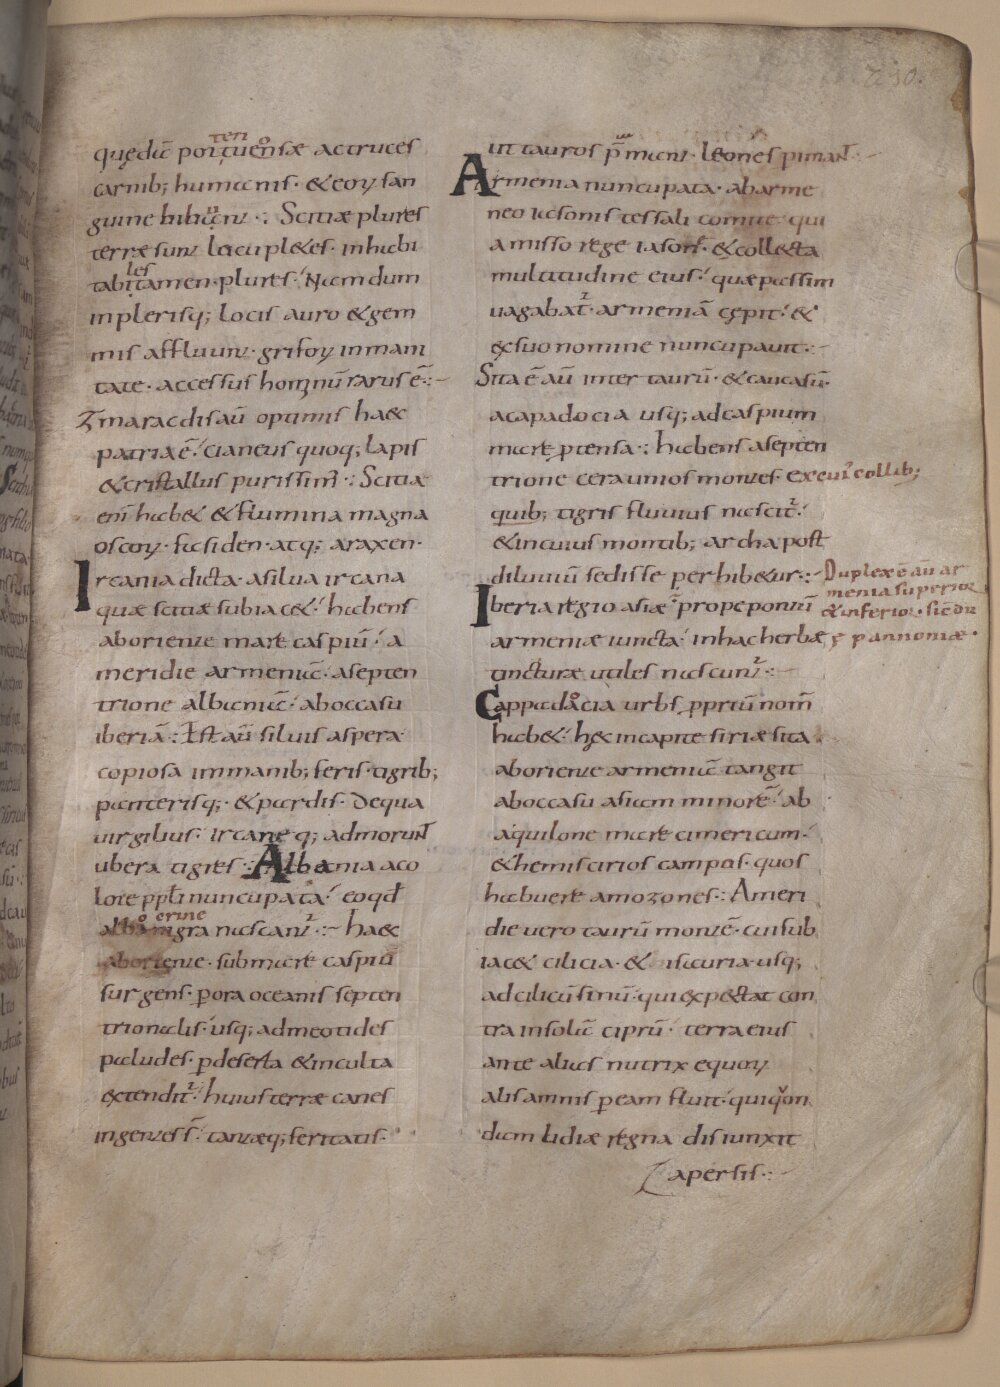 230.
quędā portuensæ ac truces
ten o
carnib; humanis · & eoꝝ san
guine bibunt ·: Scitiæ plures
terræ sunt locupl&es · inhabi
les
tabitamen · plures · Nam dum
in plerisq; locis auro & gem
mis affluunt · grifoꝝ inmani
tate · accessus hominū rarus ē ·:-
Zmaracdis aū optimis haec
patria ē · cianeus quoq; lapis
& cristallus purissim' ·: Scitia
eni hab& & flumina magna
oscoꝝ · fasiden · atq; araxen ·
Ircania dicta · a silua ircana
quæ scitiæ subiac& · habens
ab oriente mare caspiū · a
meridie armeniā · a septen
trione albaniā · ab occasu
iberiā ·: Est aū siluis aspera
copiosa immanib; feris · tigrib;
panterisq; · & pardis · De qua
uirgilius · ircane q; admorunt
ubera tigres ·: Albania a co
lore ppłi nuncupata · eo qđ
albo crine
nigra nascant' ·:- haec
ab oriente · sub mare caspiū
surgens · p ora oceani septen
trionalis · usq; ad meotides
paludes · p deserta & inculta
extendit' · huius terræ canes
ingentes s̄ · tantæq; feritatis ·
ut tauros p̄mant · leones pimant ·-
Armenia nuncupata · ab arme
neo iasonis tessali comite · qui
amisso rege iason · & collecta
multitudine eius · quæ passim
uagabat' · armeniā cępit · &
ex suo nomine nuncupauit ·-
Sita ē aū inter taurū · & caucasū ·
a capadocia usq; ad caspium
mare ptensa ·: habens a septen
trione ceraunios montes · ex cui' collib;
quib; tigris fluuius nascit' ·
& in cuius montib; archa post
diluuiū sedisse perhib&ur ·:-
Duplex ē aū ar
menia superior
& inferior · sic duę pannoniæ ·
Iberia regio asiæ · prope pontū
armeniæ iuncta · in hac herbæ
tincturæ utiles nascunt' ·:-
Cappadocia urbs ppriū nom̄
hab& · hęc in capite siriæ sita ·
ab oriente armeniā tangit
ab occasu asiam minorē · ab
aquilone mare cimericum ·
& hemiscirios campos · quos
habuere amozones ·: A meri
die uero taurū montē · cui sub
iac& cilicia · & isauria · usq;
ad cilicū sinū · qui expectat con
tra insolā ciprū · terra eius
ante alias nutrix equoꝝ
alis amnis p eam fluit · qui qon
dam lidiæ regna disiunxit
a persis ·:-